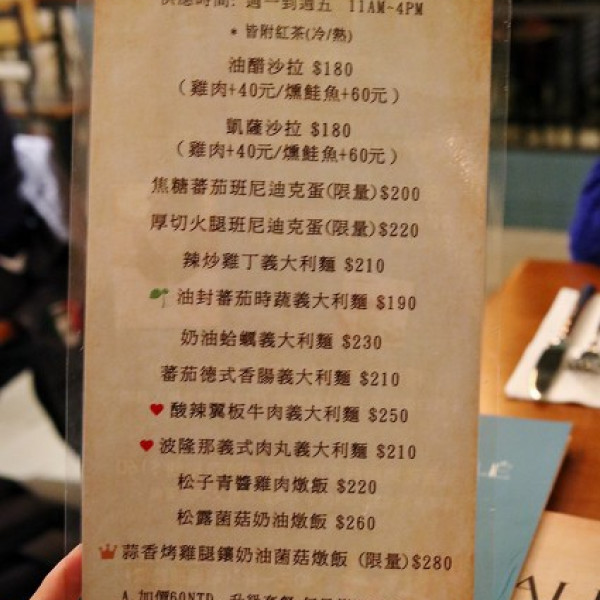 供應時間: 週一到週五 11AM~4PM
* 皆附紅茶(冷/熱)
油醋沙拉 $180
(雞肉+40元/燻鮭魚+60元)
凱薩沙拉 $180
(雞肉+40元/燻鮭魚+60元)
焦糖蕃茄班尼迪克蛋(限量)$200
厚切火腿班尼迪克蛋(限量)$220
辣炒雞丁義大利麵 $210
油封蕃茄時蔬義大利麵 $190
奶油蛤蠣義大利麵 $230
蕃茄德式香腸義大利麵 $210
酸辣翼板牛肉義大利麵 $250
波隆那義式肉丸義大利麵 $210
松子青醬雞肉燉飯 $220
松露菌菇奶油燉飯 $260
蒜香烤雞腿鑲奶油菌菇燉飯 (限量)$280
A 加價60NTD 升級套餐